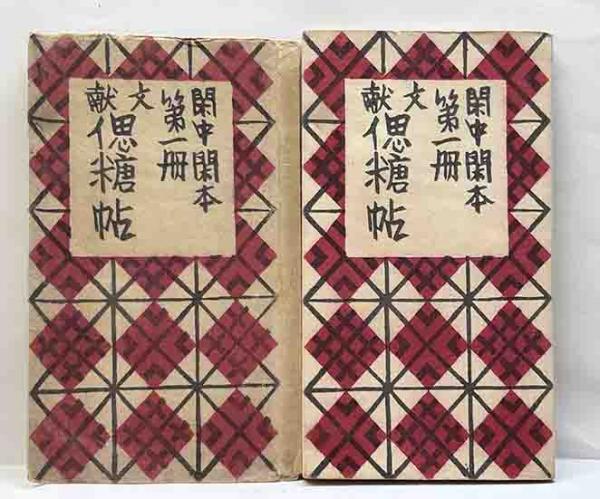 閑中閑本
第一冊
文献
偲糖帖
閑中閑本
第一冊
文献
偲糖帖